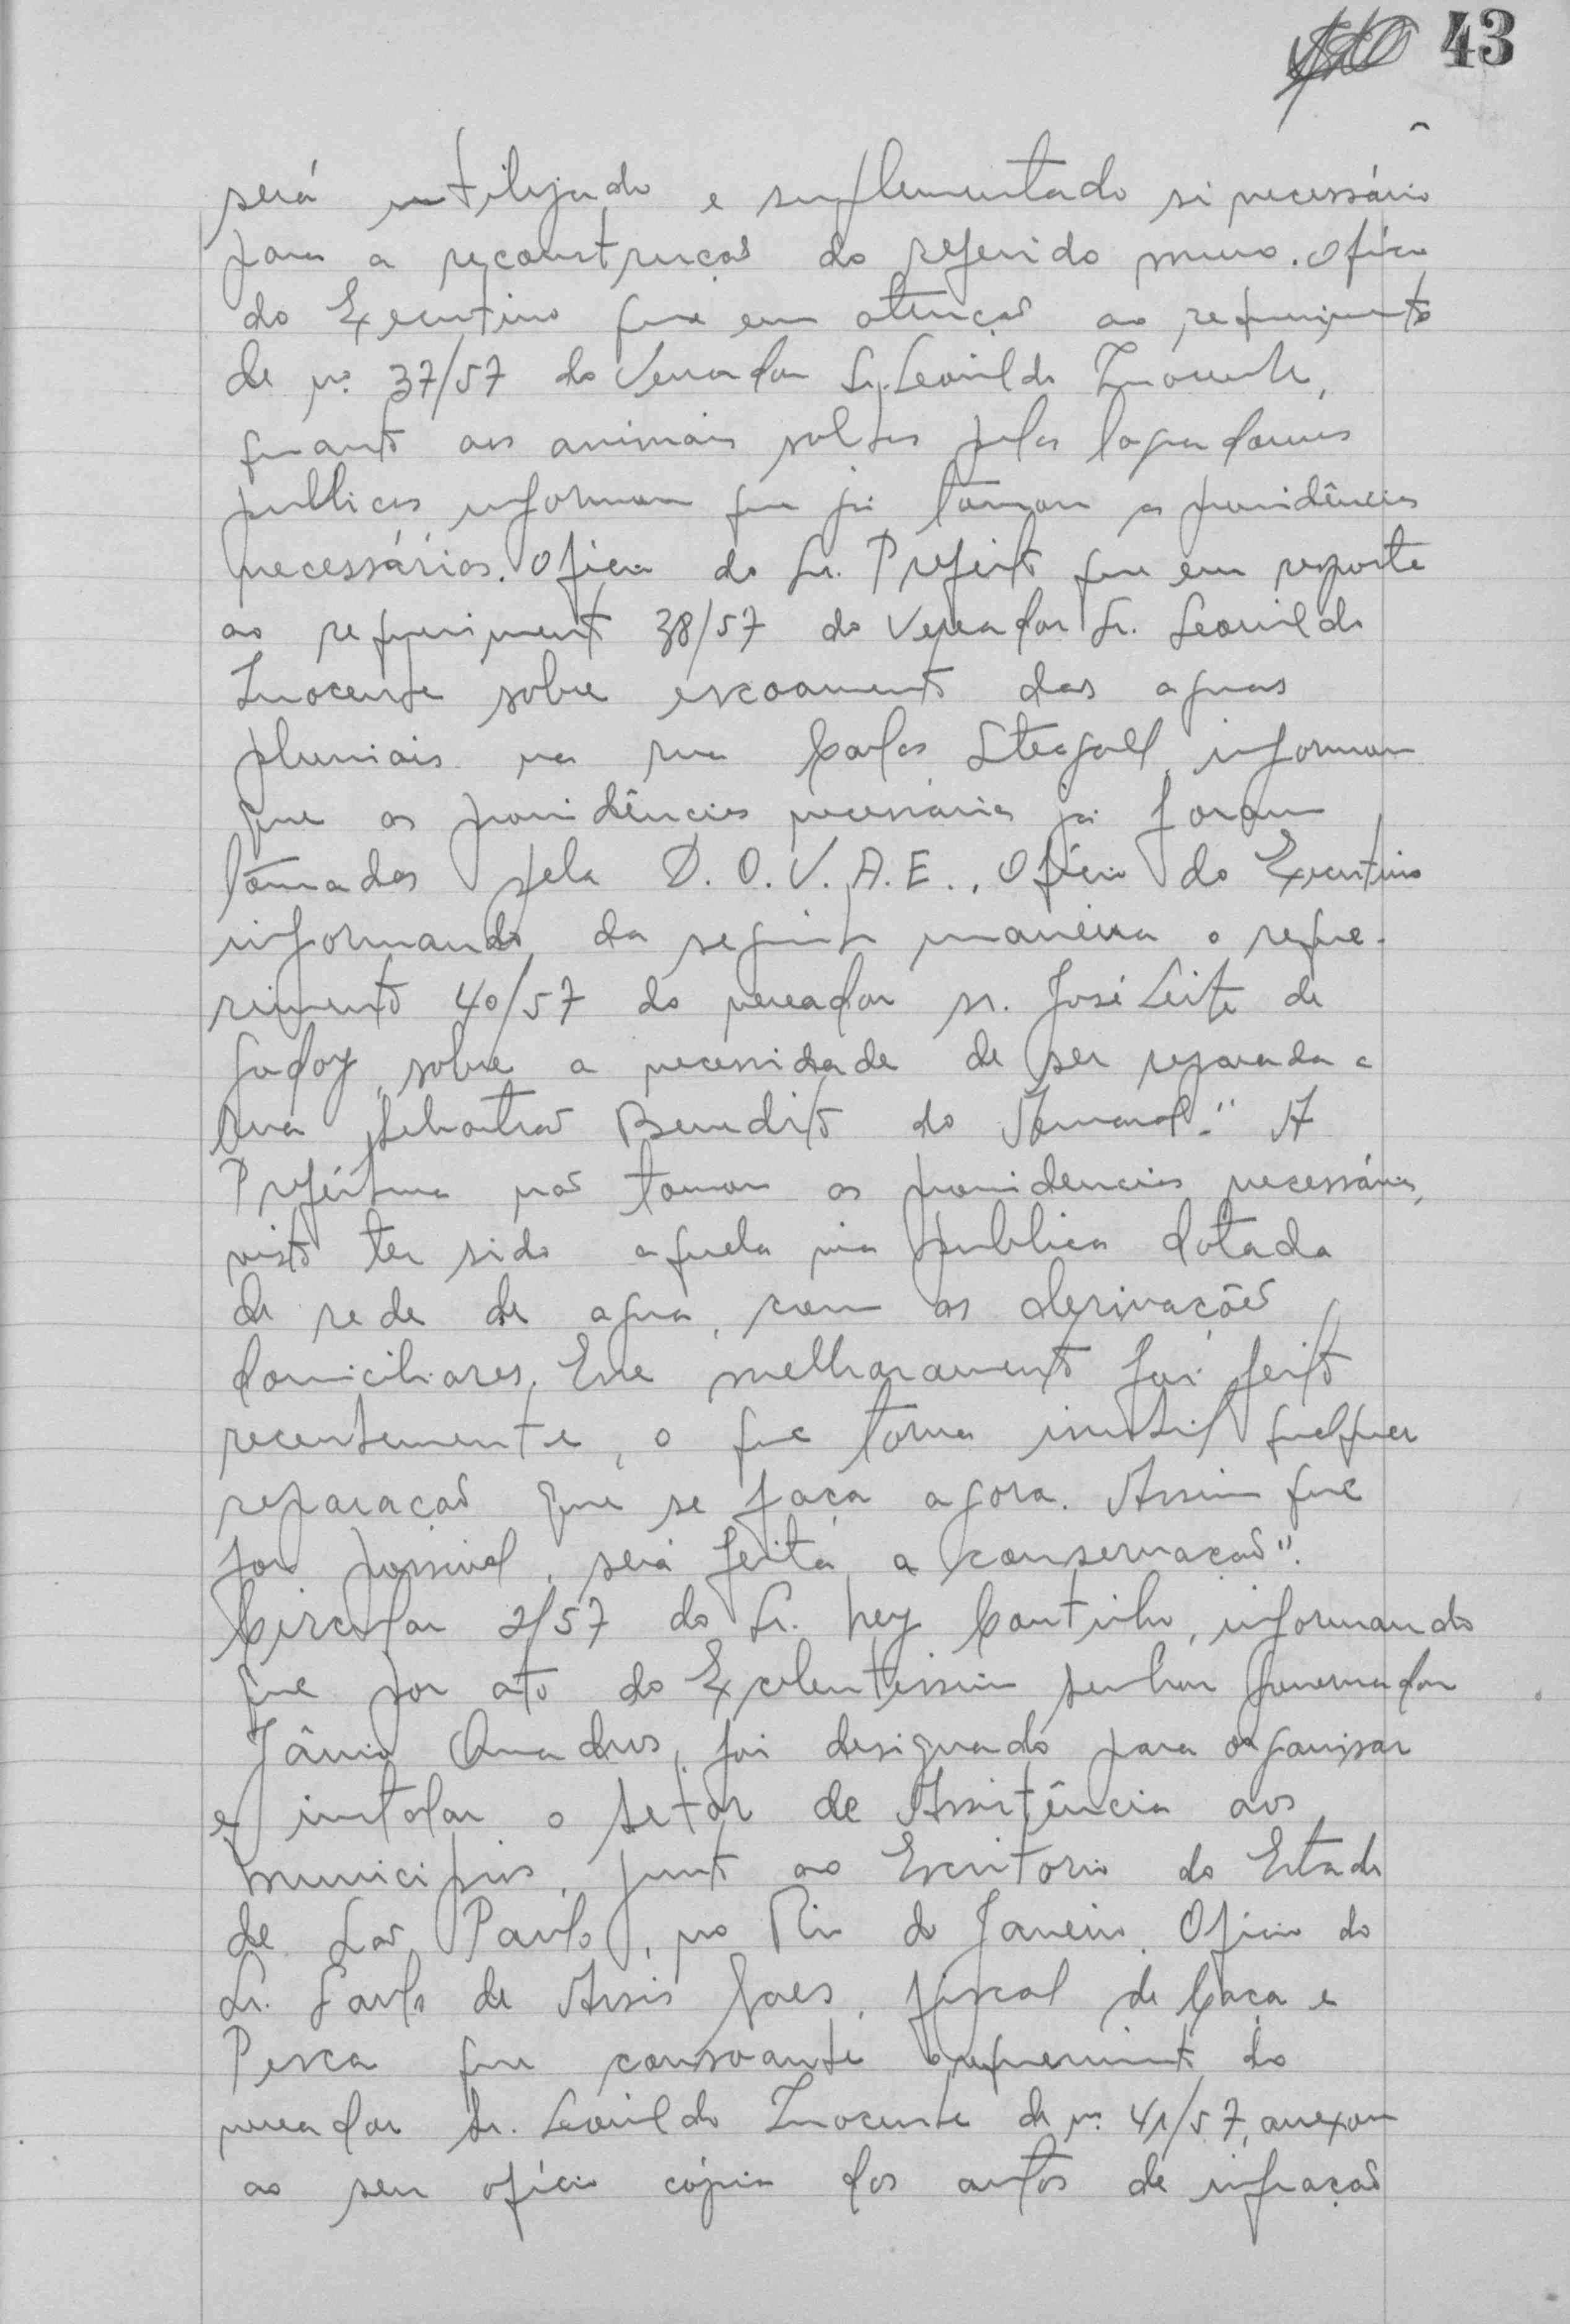 43
será utilizado e suplementado si necessário
para a reconstrução do referido muro. Ofício
do Executivo que em atenção ao requerimento
de nº 37/57 do Vereador Sr. Leonildo Inocente,
quanto aos animais soltos pelos logradouros
publicos informam que já tomou as providências
necessárias. Oficio do Sr. Prefeito que em resposta
ao requerimento 38/57 do Vereador Sr. Leonildo
Inocente sobre escoamento das aguas
pluviais na rua Carlos Stegall, informam
que as providências necessárias já foram
tômadas pela D.O.V.A.E., Ofício do Executivo
informando, da seguinte maneira o reque-
rimento 40/57 do vereador sr. José Leite de
Godoy, sobre a necessidade de ser reparada a
Rua Sebastião Benedito do Amaral: "A
Prefeitura não tomou as providencias necessárias,
visto ter sido aquela via publica dotada
de rede de agua, com as derivações
domiciliares. Esse melhoramento foi feito
recentemente, o que torna inutil qualquer
reparação que se faça agora. Assim que
for possivel, será feita a conservação".
Circular 2/57 do Sr. Ney Coutinho, informando
que por ato do Excelentissimo senhor Governador
Jânio Quadros, foi designado para organisar
e instalar o setor de Assistência aos
municipios, junto ao Escritorio do Estado
de São Paulo, no Rio de Janeiro. Oficio do
Sr. Saulo de Assis Goes, fiscal de Caça e
Pesca que consoante o requerimento do
vereador Sr. Leonildo Inocente de nº 41/57, anexou
ao seu ofício cópia dos autos de infração